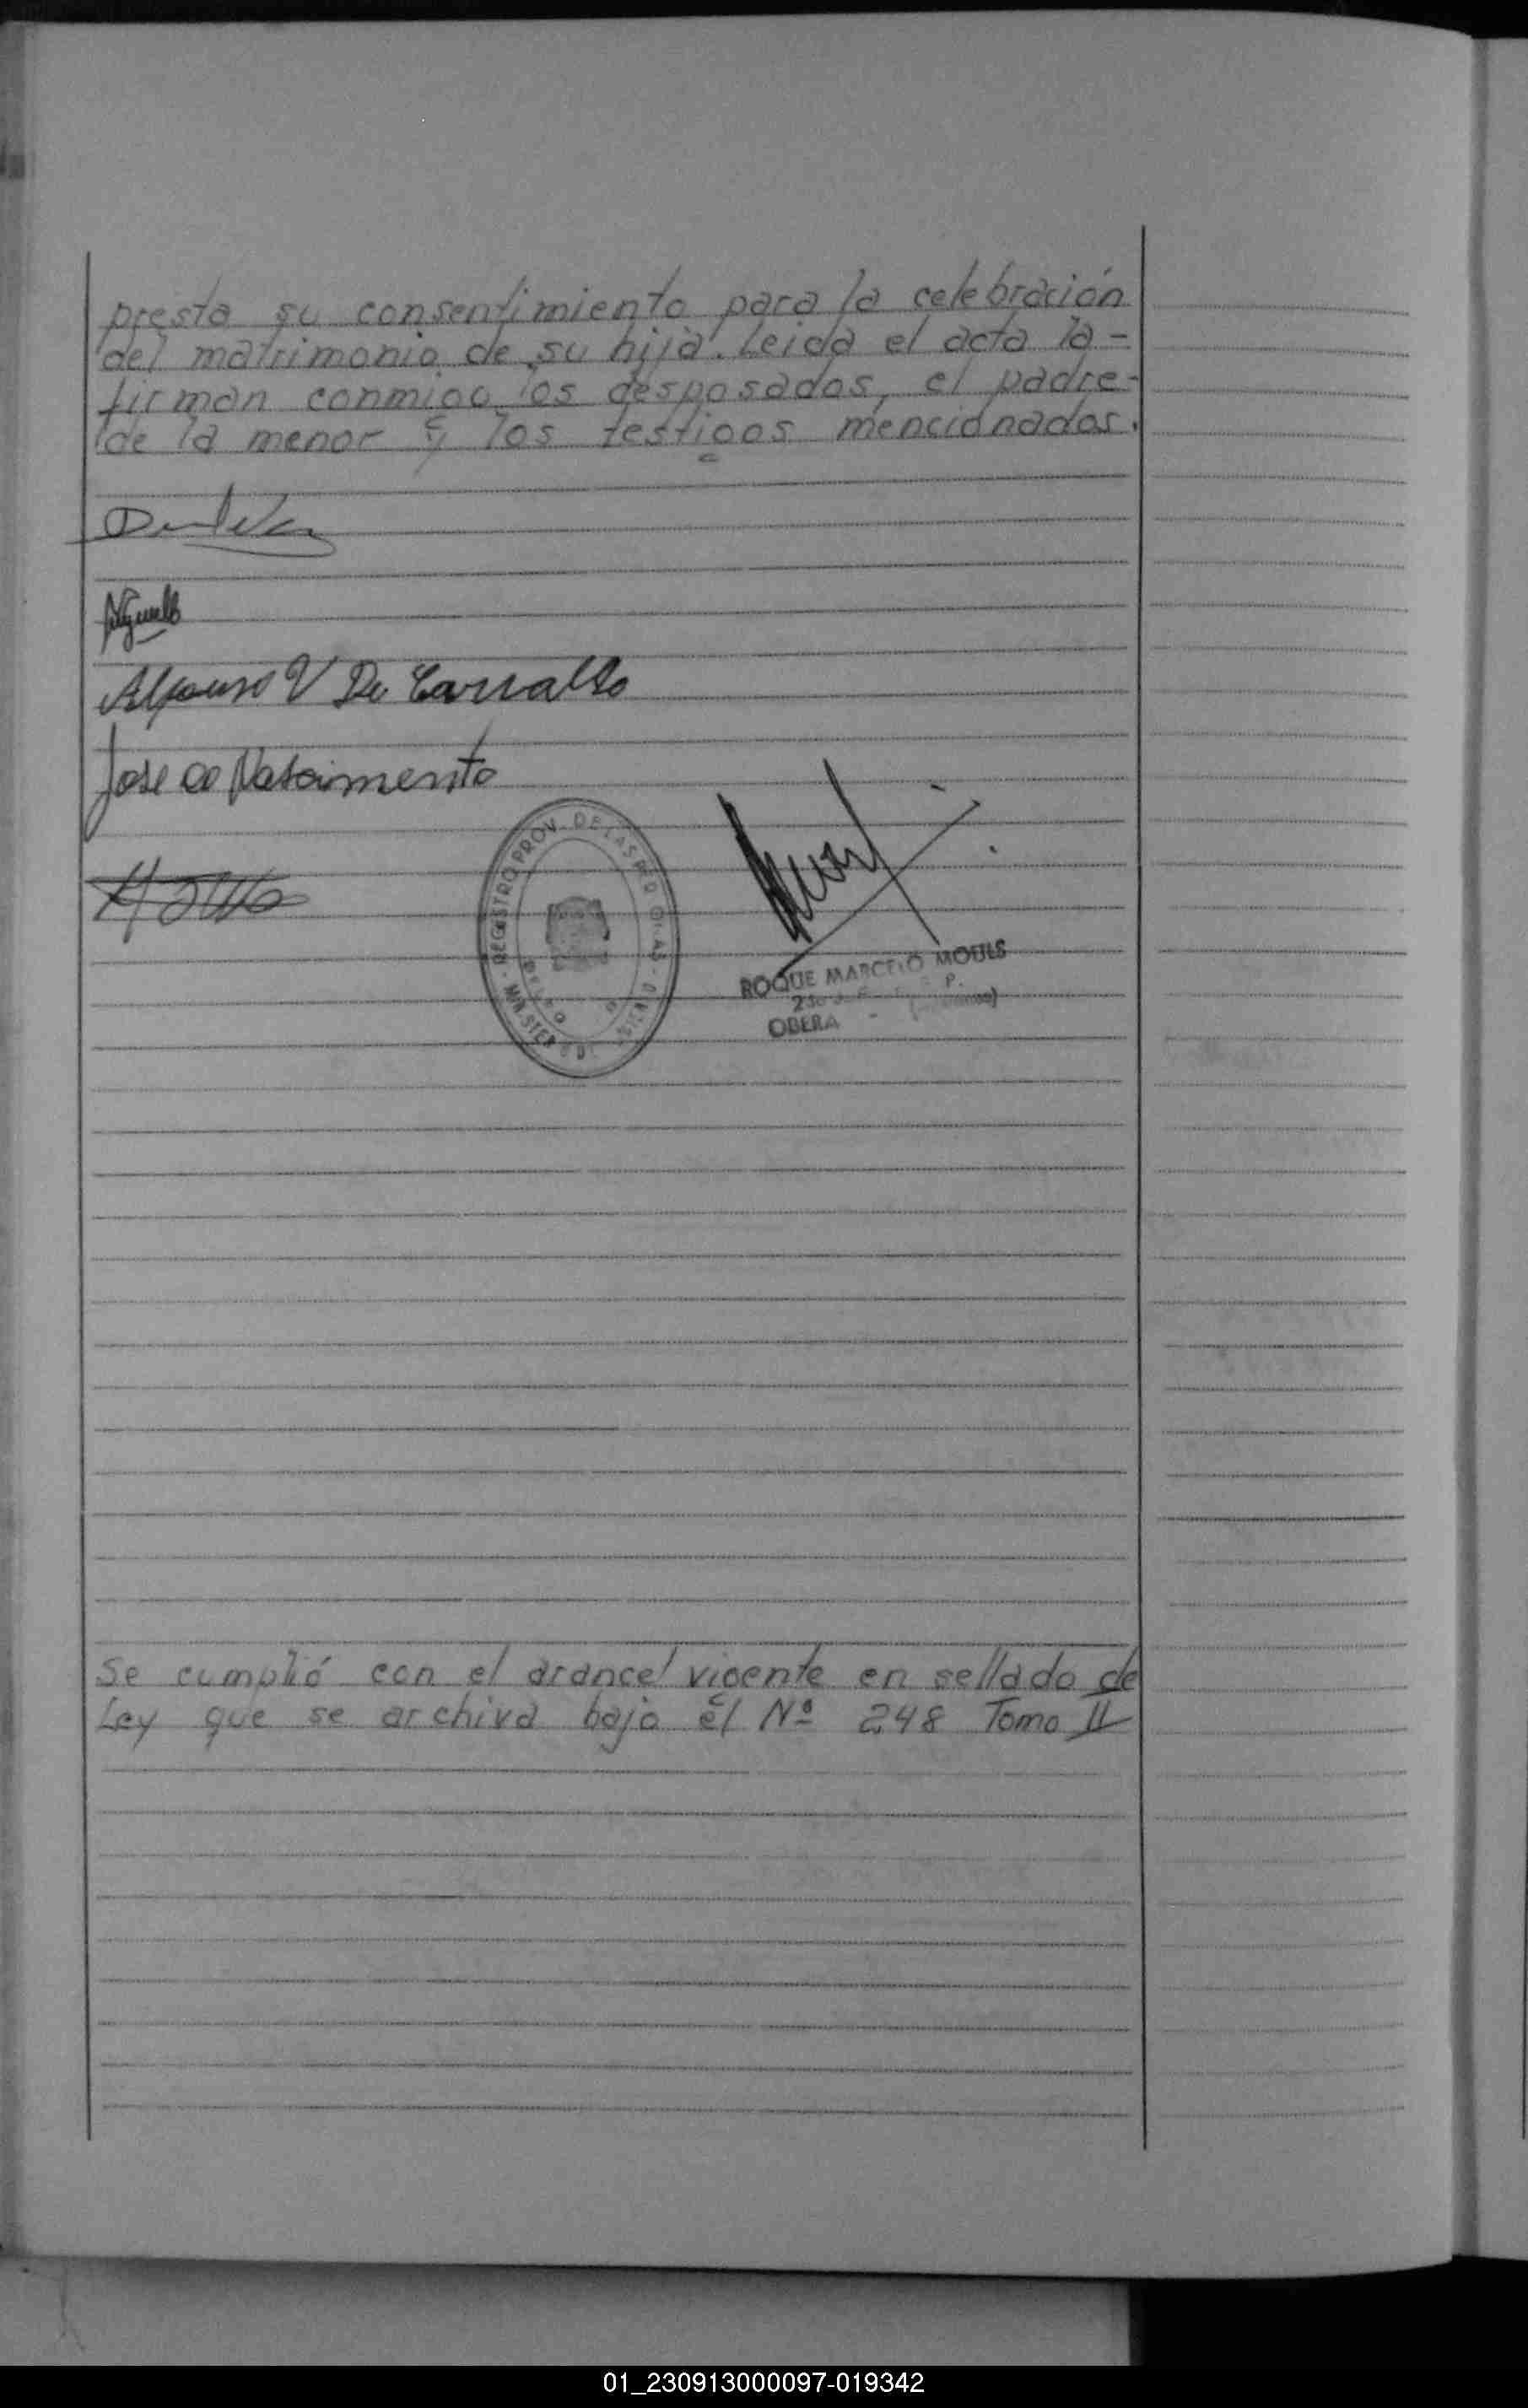 presta su consentimiento para la celebración
del matrimonio de su hija. Leida el acta la -
firman conmigo los desposados, el padre -
de la menor y los testigos mencionados.
Alfonso V De Carvalho
Jose do Nascimento
REGISTRO PROV. DE LAS PERSONAS
ROQUE MARCELO MOULS
OBERA
Se cumplió con el arancel vigente en sellado de
Ley que se archiva bajo el Nº 248 Tomo II
01_230913000097-019342